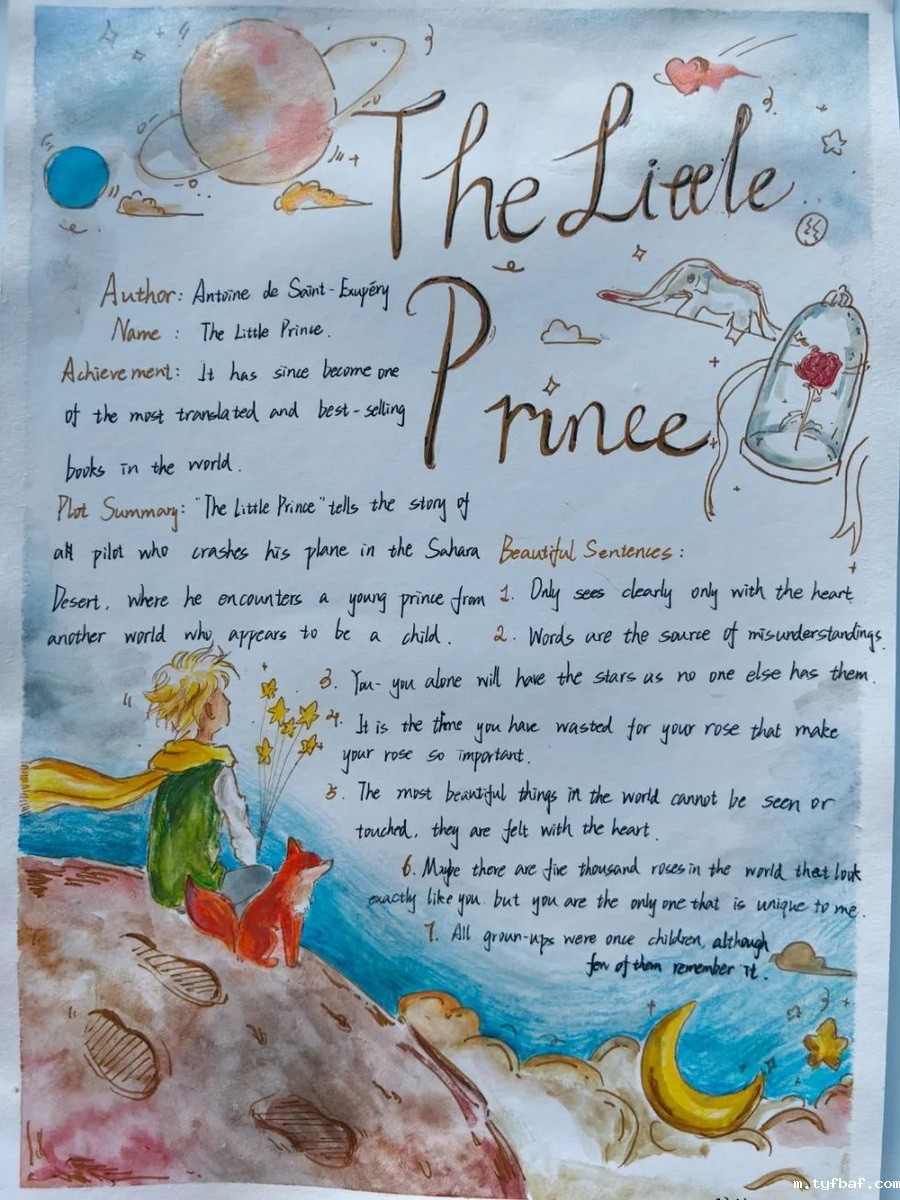 The Little
Prince
Author: Antoine de Saint-Exupéry
Name : The Little Prince.
Achievement: It has since become one
of the most translated and best-selling
books in the world.
Plot Summary: "The Little Prince" tells the story of
a pilot who crashes his plane in the Sahara
Desert, where he encounters a young prince from
another world who appears to be a child.
Beautiful Sentences:
1. Only sees clearly only with the heart.
2. Words are the source of misunderstandings.
3. You- you alone will have the stars as no one else has them.
4. It is the time you have wasted for your rose that make
your rose so important.
5. The most beautiful things in the world cannot be seen or
touched, they are felt with the heart.
6. Maybe there are five thousand roses in the world that look
exactly like you but you are the only one that is unique to me.
7. All groun-ups were once children, although
few of them remember it.
m.tyfbaf.com